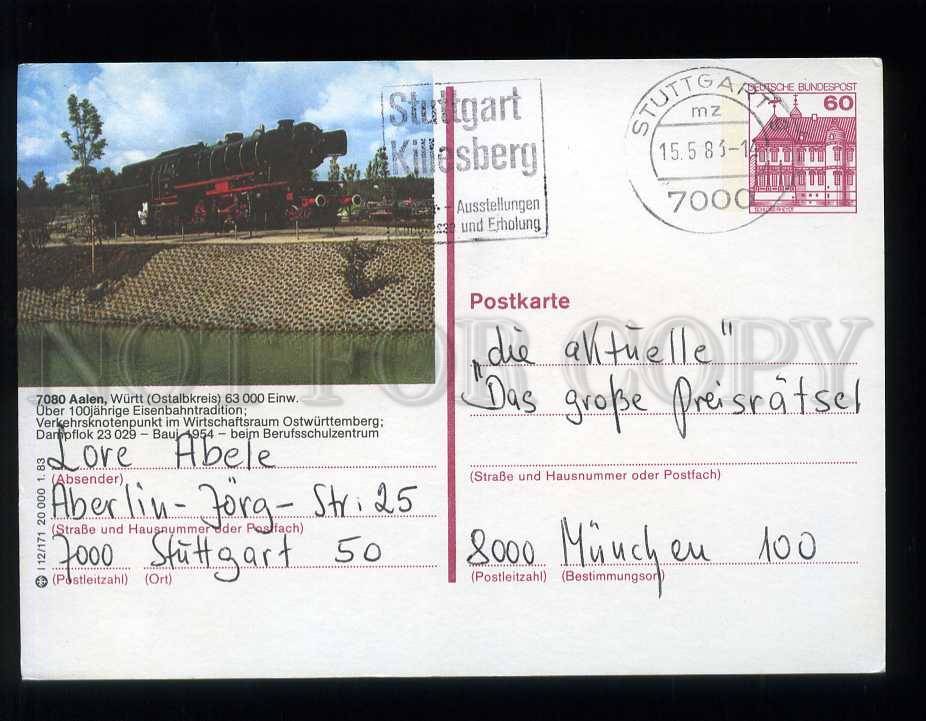 Stuttgart
Killesberg
- Ausstellungen
und Erholung
STUTTGART
mz
15.5.8
7000
DEUTSCHE BUNDESPOST
60
Postkarte
„die aktuelle"
"Das große Preisrätsel
(Straße und Hausnummer oder Postfach)
8000 München 100
(Postleitzahl) (Bestimmungsort)
7080 Aalen, Württ (Ostalbkreis) 63 000 Einw.
Über 100jährige Eisenbahntradition;
Verkehrsknotenpunkt im Wirtschaftsraum Ostwürttemberg;
Dampflok 23 029 – Bauj. 1954 – beim Berufsschulzentrum
Lore Abele
(Absender)
Aberlin-Jörg-Str. 25
(Straße und Hausnummer oder Postfach)
7000 Stuttgart 50
(Postleitzahl) (Ort)
112/171 20 000 1.83
NOT FOR COPY